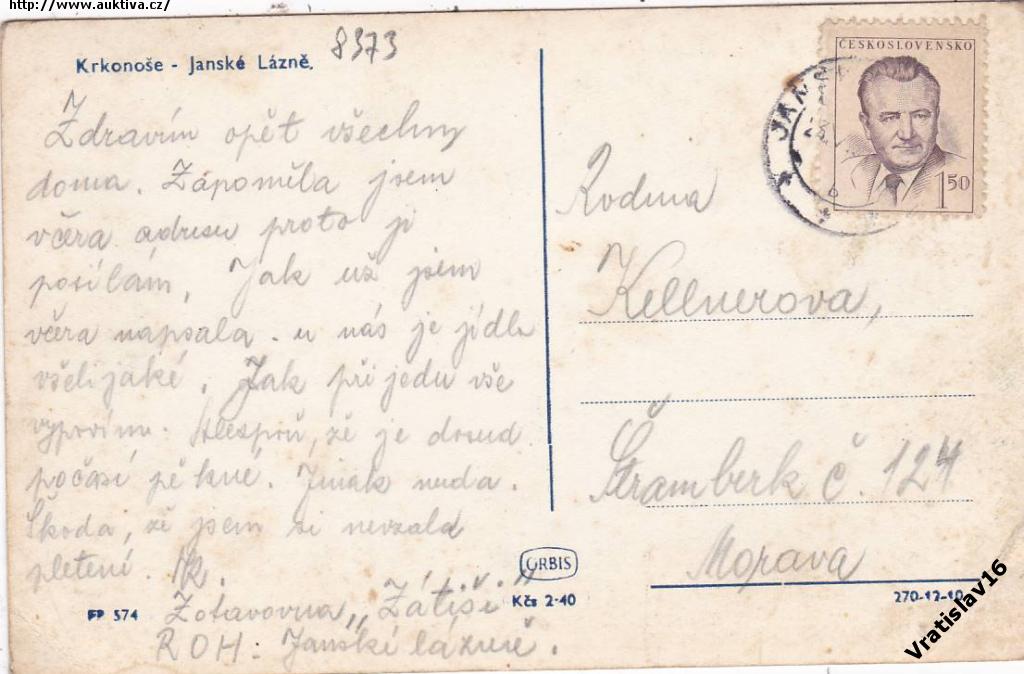 http://www.auktiva.cz/
Krkonoše - Janské Lázně.
8373
Zdravím opět všechny
doma. Zapoměla jsem
včera adresu proto ji
posílám. Jak už jsem
včera napsala. u nás je jídlo
všelijaké. Jak přijedu vše
vypovím. Alespoň, že je dosud
počasí pěkné. Jinak nuda.
Škoda, že jsem si nevzala
pletení.
Zotavovna „Zátiší"
ROH: Janské lázně.
FP 574
ORBIS
Kčs 2·40
ČESKOSLOVENSKO
1 50
JANS
Rodina
Kellnerova,
Štramberk č. 124
Morava
270-12-10
Vratislav16